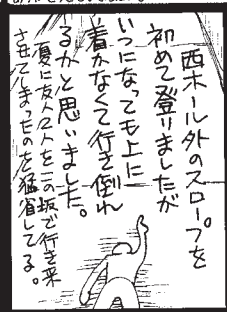 西ホール外のスロープを
初めて登りましたが
いつになっても上に
着かなくて行き倒れ
るかと思いました。
夏に友人2人をこの坂で行き来
させてしまったのを猛省してる。